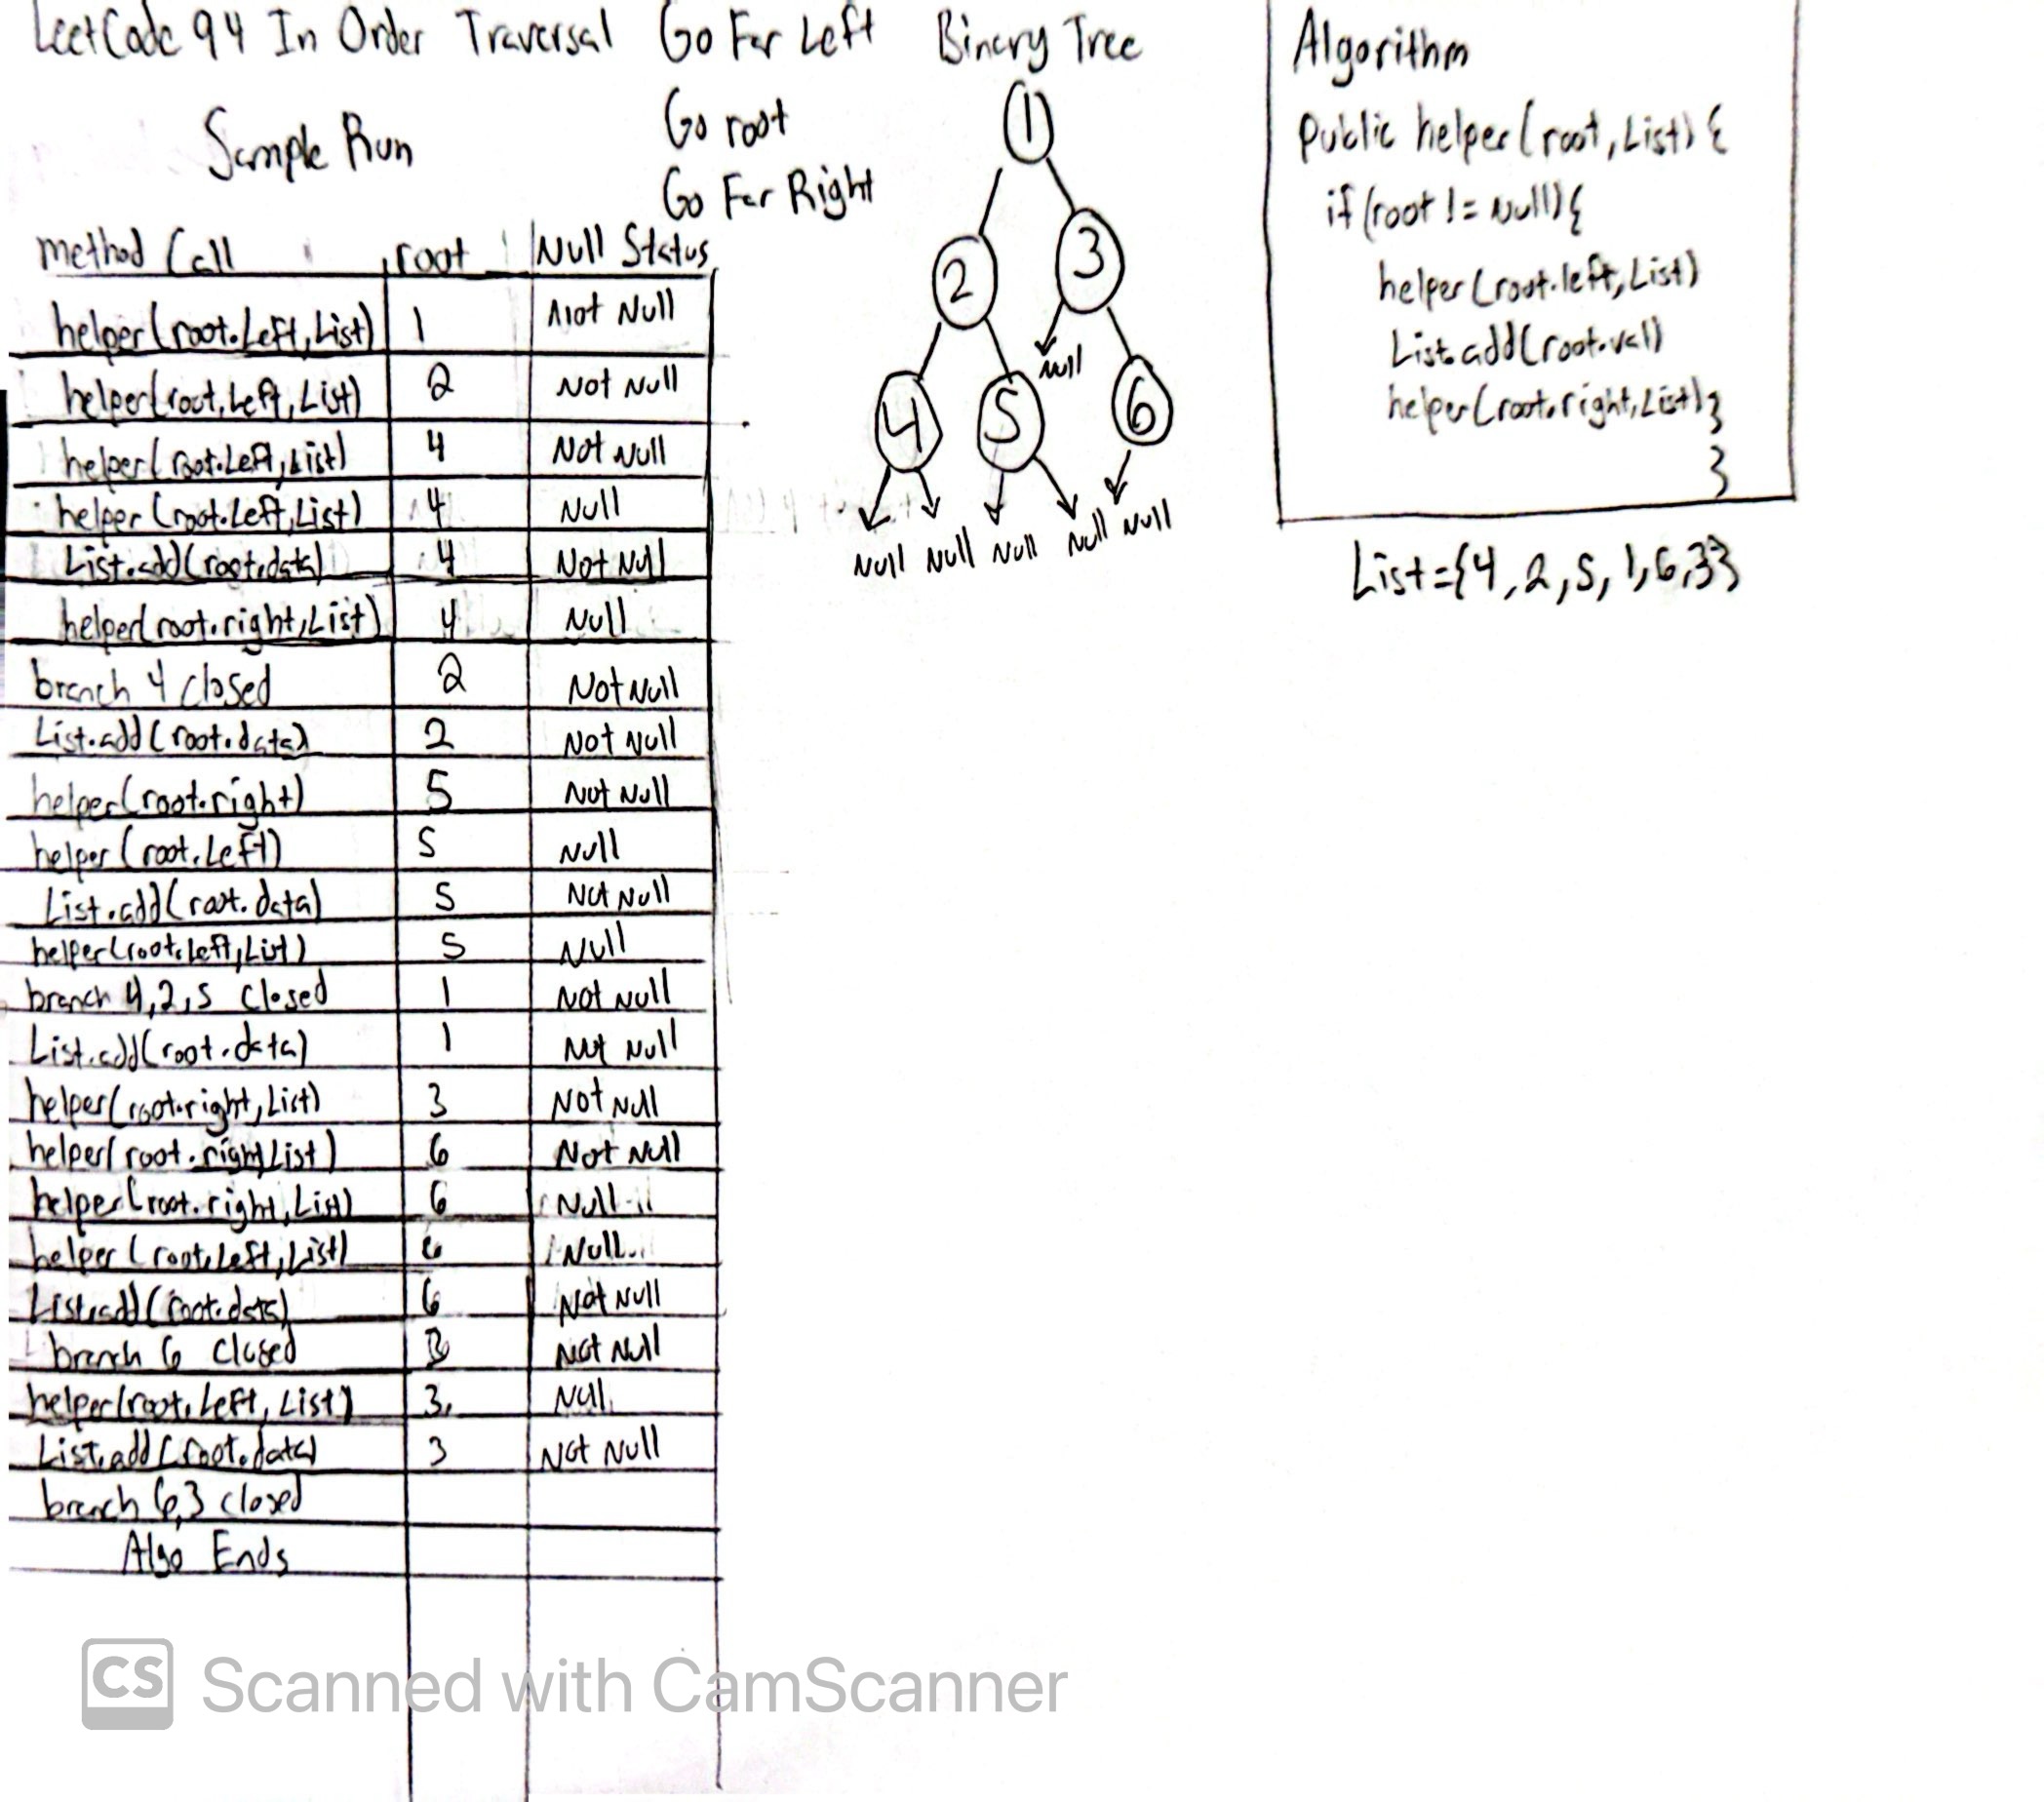 LeetCode 94 In Order Traversal Go Far Left Binary Tree
Go root
Sample Run
Go Far Right
method Call root Null Status
helper(root.Left,List) 1 Not Null
helper(root.Left,List) 2 Not Null
helper(root.Left,List) 4 Not Null
helper(root.Left,List) 4 Null
List.add(root.data) 4 Not Null
helper(root.right,List) 4 Null
branch 4 closed 2 Not Null
List.add(root.data) 2 Not Null
helper(root.right) 5 Not Null
helper(root.Left) 5 Null
List.add(root.data) 5 Not Null
helper(root.Left,List) 5 Null
branch 4,2,5 Closed 1 Not Null
List.add(root.data) 1 Not Null
helper(root.right,List) 3 Not Null
helper(root.right,List) 6 Not Null
helper(root.right,List) 6 Null
helper(root.Left,List) 6 Null
List.add(root.data) 6 Not Null
branch 6 Closed 3 Not Null
helper(root.Left, List) 3 Null
List.add(root.data) 3 Not Null
branch 6,3 closed
Algo Ends
1
2 3
Null
4 5 6
Null Null Null Null Null
Algorithm
Public helper(root,List){
if(root != Null){
helper(root.left,List)
List.add(root.val)
helper(root.right,List)}
}
List={4,2,5,1,6,3}
CS Scanned with CamScanner